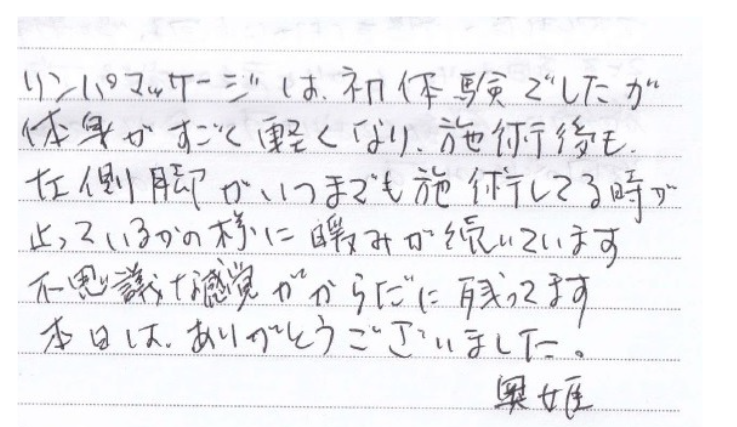 リンパマッサージは、初体験でしたが
体身がすごく軽くなり、施術後も、
左側脚がいつまでも施術してる時が
止っているかの様に暖みが続いています
不思議な感覚がからだに残ってます
本日は、ありがとうございました。
奥姫